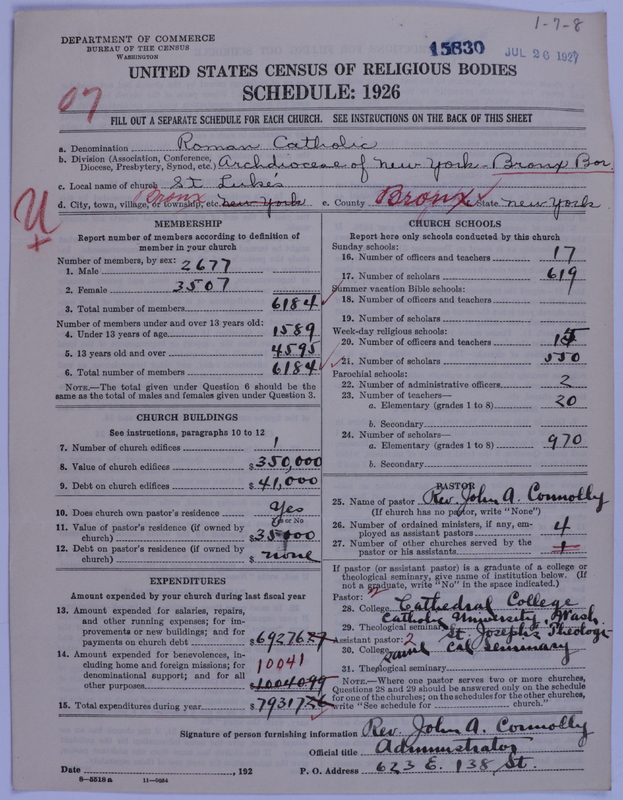 1-7-8
DEPARTMENT OF COMMERCE
BUREAU OF THE CENSUS
WASHINGTON
15830
JUL 26 1927
UNITED STATES CENSUS OF RELIGIOUS BODIES
SCHEDULE: 1926
07
FILL OUT A SEPARATE SCHEDULE FOR EACH CHURCH. SEE INSTRUCTIONS ON THE BACK OF THIS SHEET
a. Denomination Roman Catholic
b. Division (Association, Conference, Diocese, Presbytery, Synod, etc.) Archdiocese of New York - Bronx Bor.
c. Local name of church St Luke's
d. City, town, village, or township, etc. New York Bronx e. County Bronx State New York
U
MEMBERSHIP
Report number of members according to definition of
member in your church
Number of members, by sex:
1. Male 2677
2. Female 3507
3. Total number of members 6184
Number of members under and over 13 years old:
4. Under 13 years of age 1589
5. 13 years old and over 4595
6. Total number of members 6184
NOTE.—The total given under Question 6 should be the
same as the total of males and females given under Question 3.
CHURCH BUILDINGS
See instructions, paragraphs 10 to 12
7. Number of church edifices 1
8. Value of church edifices $350,000
9. Debt on church edifices $41,000
10. Does church own pastor's residence Yes
Yes or No
11. Value of pastor's residence (if owned by
church) $35000
12. Debt on pastor's residence (if owned by
church) $ none
EXPENDITURES
Amount expended by your church during last fiscal year
13. Amount expended for salaries, repairs,
and other running expenses; for im-
provements or new buildings; and for
payments on church debt $69276
14. Amount expended for benevolences, in-
cluding home and foreign missions; for
denominational support; and for all
other purposes 10041
15. Total expenditures during year $79317
CHURCH SCHOOLS
Report here only schools conducted by this church
Sunday schools:
16. Number of officers and teachers 17
17. Number of scholars 619
Summer vacation Bible schools:
18. Number of officers and teachers
19. Number of scholars
Week-day religious schools:
20. Number of officers and teachers 15
21. Number of scholars 550
Parochial schools:
22. Number of administrative officers 2
23. Number of teachers—
a. Elementary (grades 1 to 8) 20
b. Secondary
24. Number of scholars—
a. Elementary (grades 1 to 8) 970
b. Secondary
PASTOR
25. Name of pastor Rev. John A. Connolly
(If church has no pastor, write "None")
26. Number of ordained ministers, if any, em-
ployed as assistant pastors 4
27. Number of other churches served by the
pastor or his assistants 1
If pastor (or assistant pastor) is a graduate of a college or
theological seminary, give name of institution below. (If
not a graduate, write "No" in the space indicated.)
Pastor:
28. College Cathedral College
29. Theological seminary Catholic University, Wash.
Assistant pastor: 2 St. Joseph's Theologi
30. College Same cal Seminary
31. Theological seminary
NOTE.—Where one pastor serves two or more churches,
Questions 28 and 29 should be answered only on the schedule
for one of the churches; on the schedules for the other churches,
write "See schedule for church."
Signature of person furnishing information Rev. John A. Connolly
Official title Administrator
Date , 192 P. O. Address 623 E. 138 St.
8-5518 a 11-9034